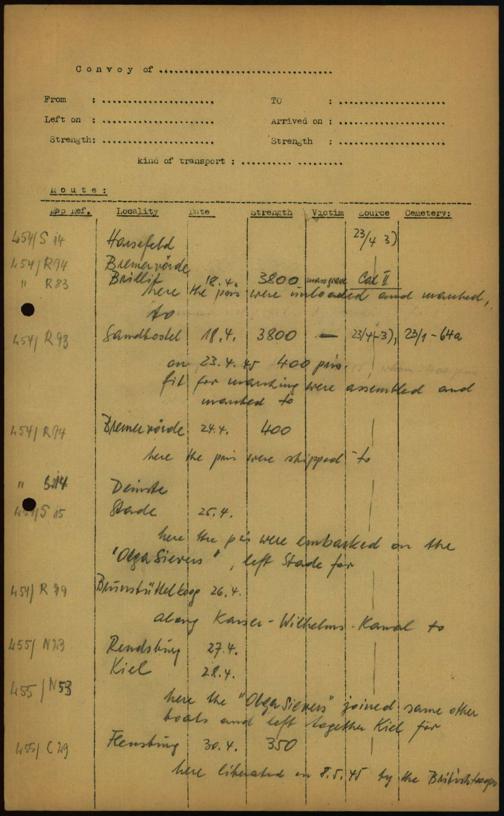 Convoy of ........................
From : ........................ TO : ........................
Left on : ........................ Arrived on : ........................
Strength: ........................ Strength : ........................
kind of transport : ........................
Route:
Map Ref. Locality Date Strength Victim Source Cemetery:
454/S 14 Harsefeld 23/4 3)
454/R74 Bremervörde
" R83 Brillit 18.4. 3800 Cat II
here the pris were unloaded and marched,
to
454/R93 Sandbostel 18.4. 3800 — 23/4-3), 23/1-64a
on 23.4.45 400 pris.
fit for marching were assembled and
marched to
454/R74 Bremervörde 24.4. 400
here the pris were shipped to
" S14 Deinste
S 15 Stade 25.4.
here the pris were embarked on the
"Olga Sievers", left Stade for
454/R 79 Brunsbüttelkoog 26.4.
along Kaiser-Wilhelms-Kanal to
455/N23 Rendsburg 27.4.
455/N53 Kiel 28.4.
here the "Olga Sievers" joined some other
boats and left together Kiel for
455/C29 Flensburg 30.4. 350
here liberated on 8.5.45 by the British troops